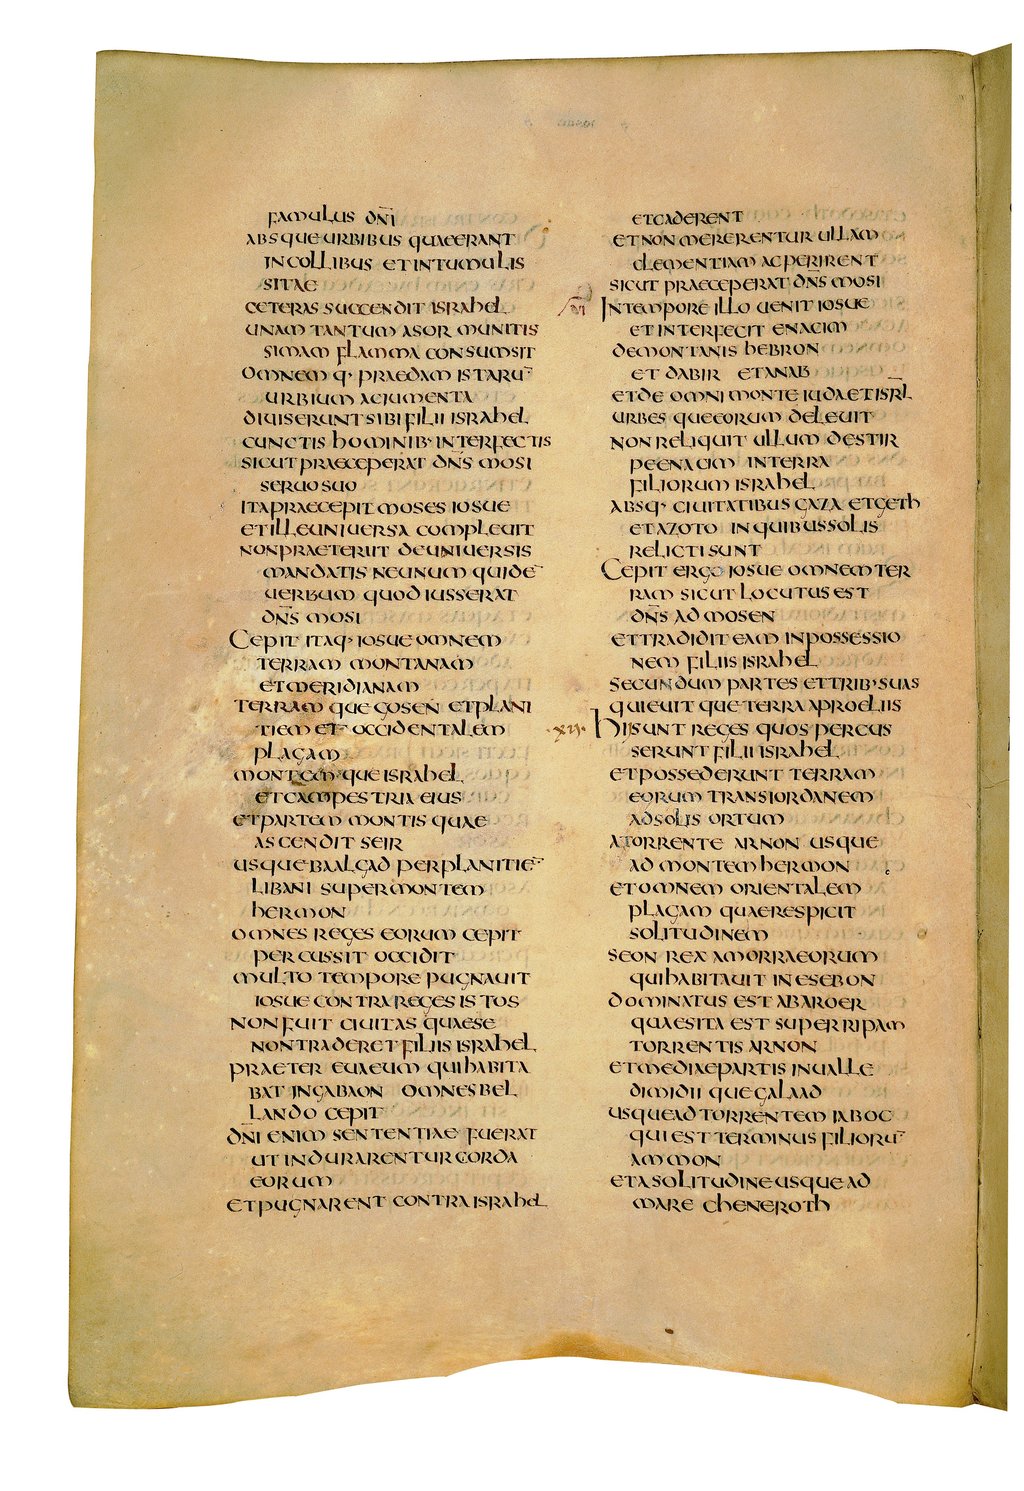 famulus dn̄i
absque urbibus quae erant
in collibus et in tumulis
sitae
ceteras succendit israhel
unam tantum asor munitis
simam flamma consumsit
omnemq· praedam istaru̅
urbium ac iumenta
diuiserunt sibi filii israhel
cunctis hominib· interfectis
sicut praeceperat dn̄s mosi
seruo suo
ita praecepit moses iosue
et ille uniuersa compleuit
non praeteriit de uniuersis
mandatis ne unum quide̅
uerbum quod iusserat
dn̄s mosi
Cepit itaq· iosue omnem
terram montanam
et meridianam
terramque gosen et plani
tiem et occidentalem
plagam
montemque israhel
et campestria eius
et partem montis quae
ascendit seir
usque baalgad per planitie̅
libani super montem
hermon
omnes reges eorum cepit
percussit occidit
multo tempore pugnauit
iosue contra reges istos
non fuit ciuitas quae se
non traderet filiis israhel
praeter euaeum qui habita
bat in gabaon omnes bel
lando cepit
dn̄i enim sententiae fuerat
ut indurarentur corda
eorum
et pugnarent contra israhel
et caderent
et non mererentur ullam
clementiam ac perirent
sicut praeceperat dn̄s mosi
In tempore illo uenit iosue
et interfecit enacim
de montanis hebron
et dabir et anab
et de omni monte iuda et isrl̅
urbesque eorum deleuit
non reliquit ullum de stir
pe enacim in terra
filiorum israhel
absq· ciuitatibus gaza et geth
et azoto in quibus solis
relicti sunt
Cepit ergo iosue omnem ter
ram sicut locutus est
dn̄s ad mosen
et tradidit eam in possessio
nem filiis israhel
secundum partes et trib· suas
quieuitque terra a proeliis
·xii· Hii sunt reges quos percus
serunt filii israhel
et possederunt terram
eorum trans iordanem
ad solis ortum
a torrente arnon usque
ad montem hermon
et omnem orientalem
plagam quae respicit
solitudinem
seon rex amorraeorum
qui habitauit in esebon
dominatus est ab aroer
quae sita est super ripam
torrentis arnon
et mediae partis in ualle
dimidiique galaad
usque ad torrentem iaboc
qui est terminus filioru̅
ammon
et a solitudine usque ad
mare cheneroth